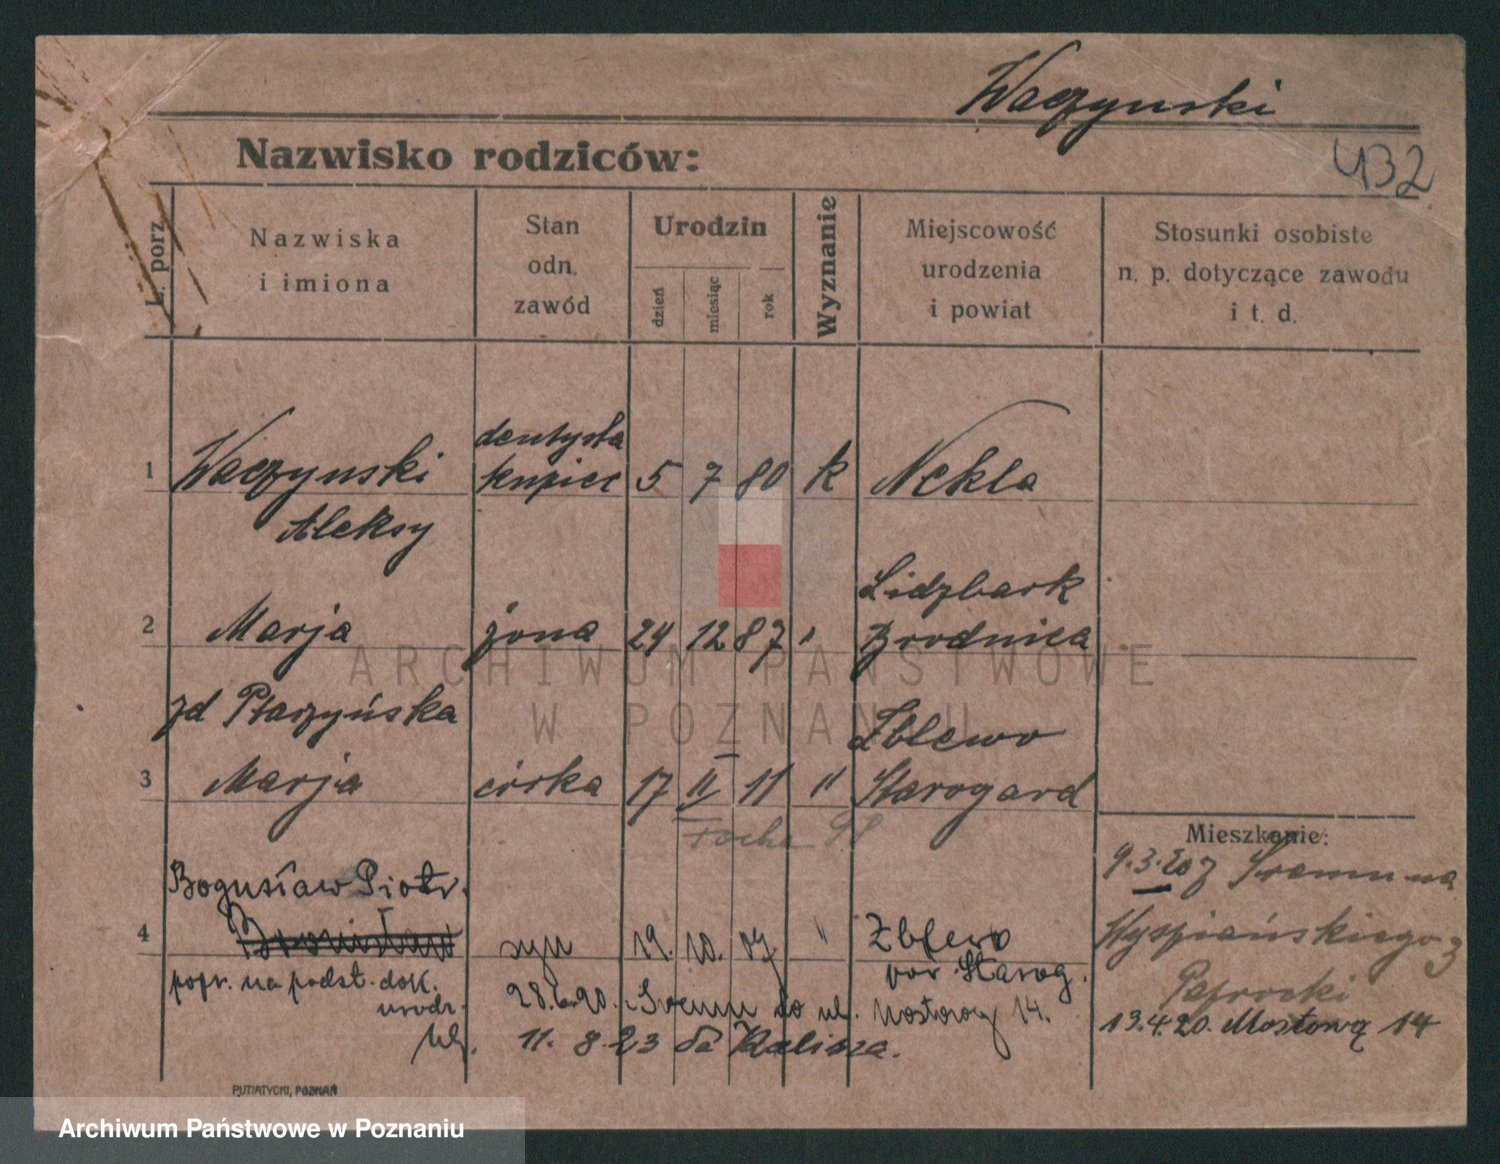 Waczynski
432
Nazwisko rodziców:
L. porz.
Nazwiska
i imiona
Stan
odn.
zawód
Urodzin
dzień
miesiąc
rok
Wyznanie
Miejscowość
urodzenia
i powiat
Stosunki osobiste
n. p. dotyczące zawodu
i t. d.
dentysta
1 Waczynski kupiec 5 7 80 k Nekla
Aleksy
Lidzbark
2 Marja żona 24 12 87 " Brodnica
zd Ptaszyńska Zblewo
3 Marja córka 17 II 11 " Starogard
Focha
Mieszkanie:
9.3.20 z Śremu na
Bogusław Piotr.
4 Bronisław syn 19. 10. 07 " Zblewo
Wyspiańskiego 3
popr. na podst. dok. pow. Starog.
urodz.
Paprocki
28.6.20. Śremu do ul. Mostowej 14.
13.4.20. Mostowa 14
11. 8. 23 do Kalisza.
PUTIATYCKI, POZNAŃ
ARCHIWUM PAŃSTWOWE
W POZNANIU
Archiwum Państwowe w Poznaniu